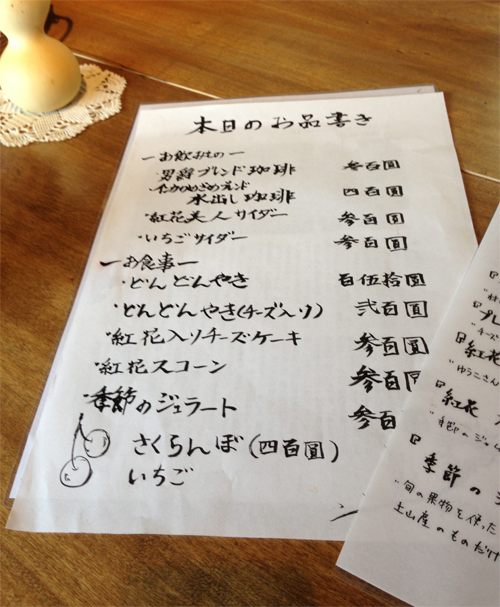 本日のお品書き
ーお飲みものー
・男爵ブレンド珈琲 参百圓
・インカのめざめブレンド
水出し珈琲 四百圓
・紅花美人サイダー 参百圓
・いちごサイダー 参百圓
ーお食事ー
・どんどんやき 百伍拾圓
・どんどんやき(チーズ入り) 弐百圓
・紅花入りチーズケーキ 参百圓
・紅花スコーン 参百
・季節のジェラート 参百
さくらんぼ(四百圓)
いちご
プレ
チーズ
紅花
ゆうこさん
紅花
季節のジェ
季節の
旬の果物を使った
上山産のものだけ